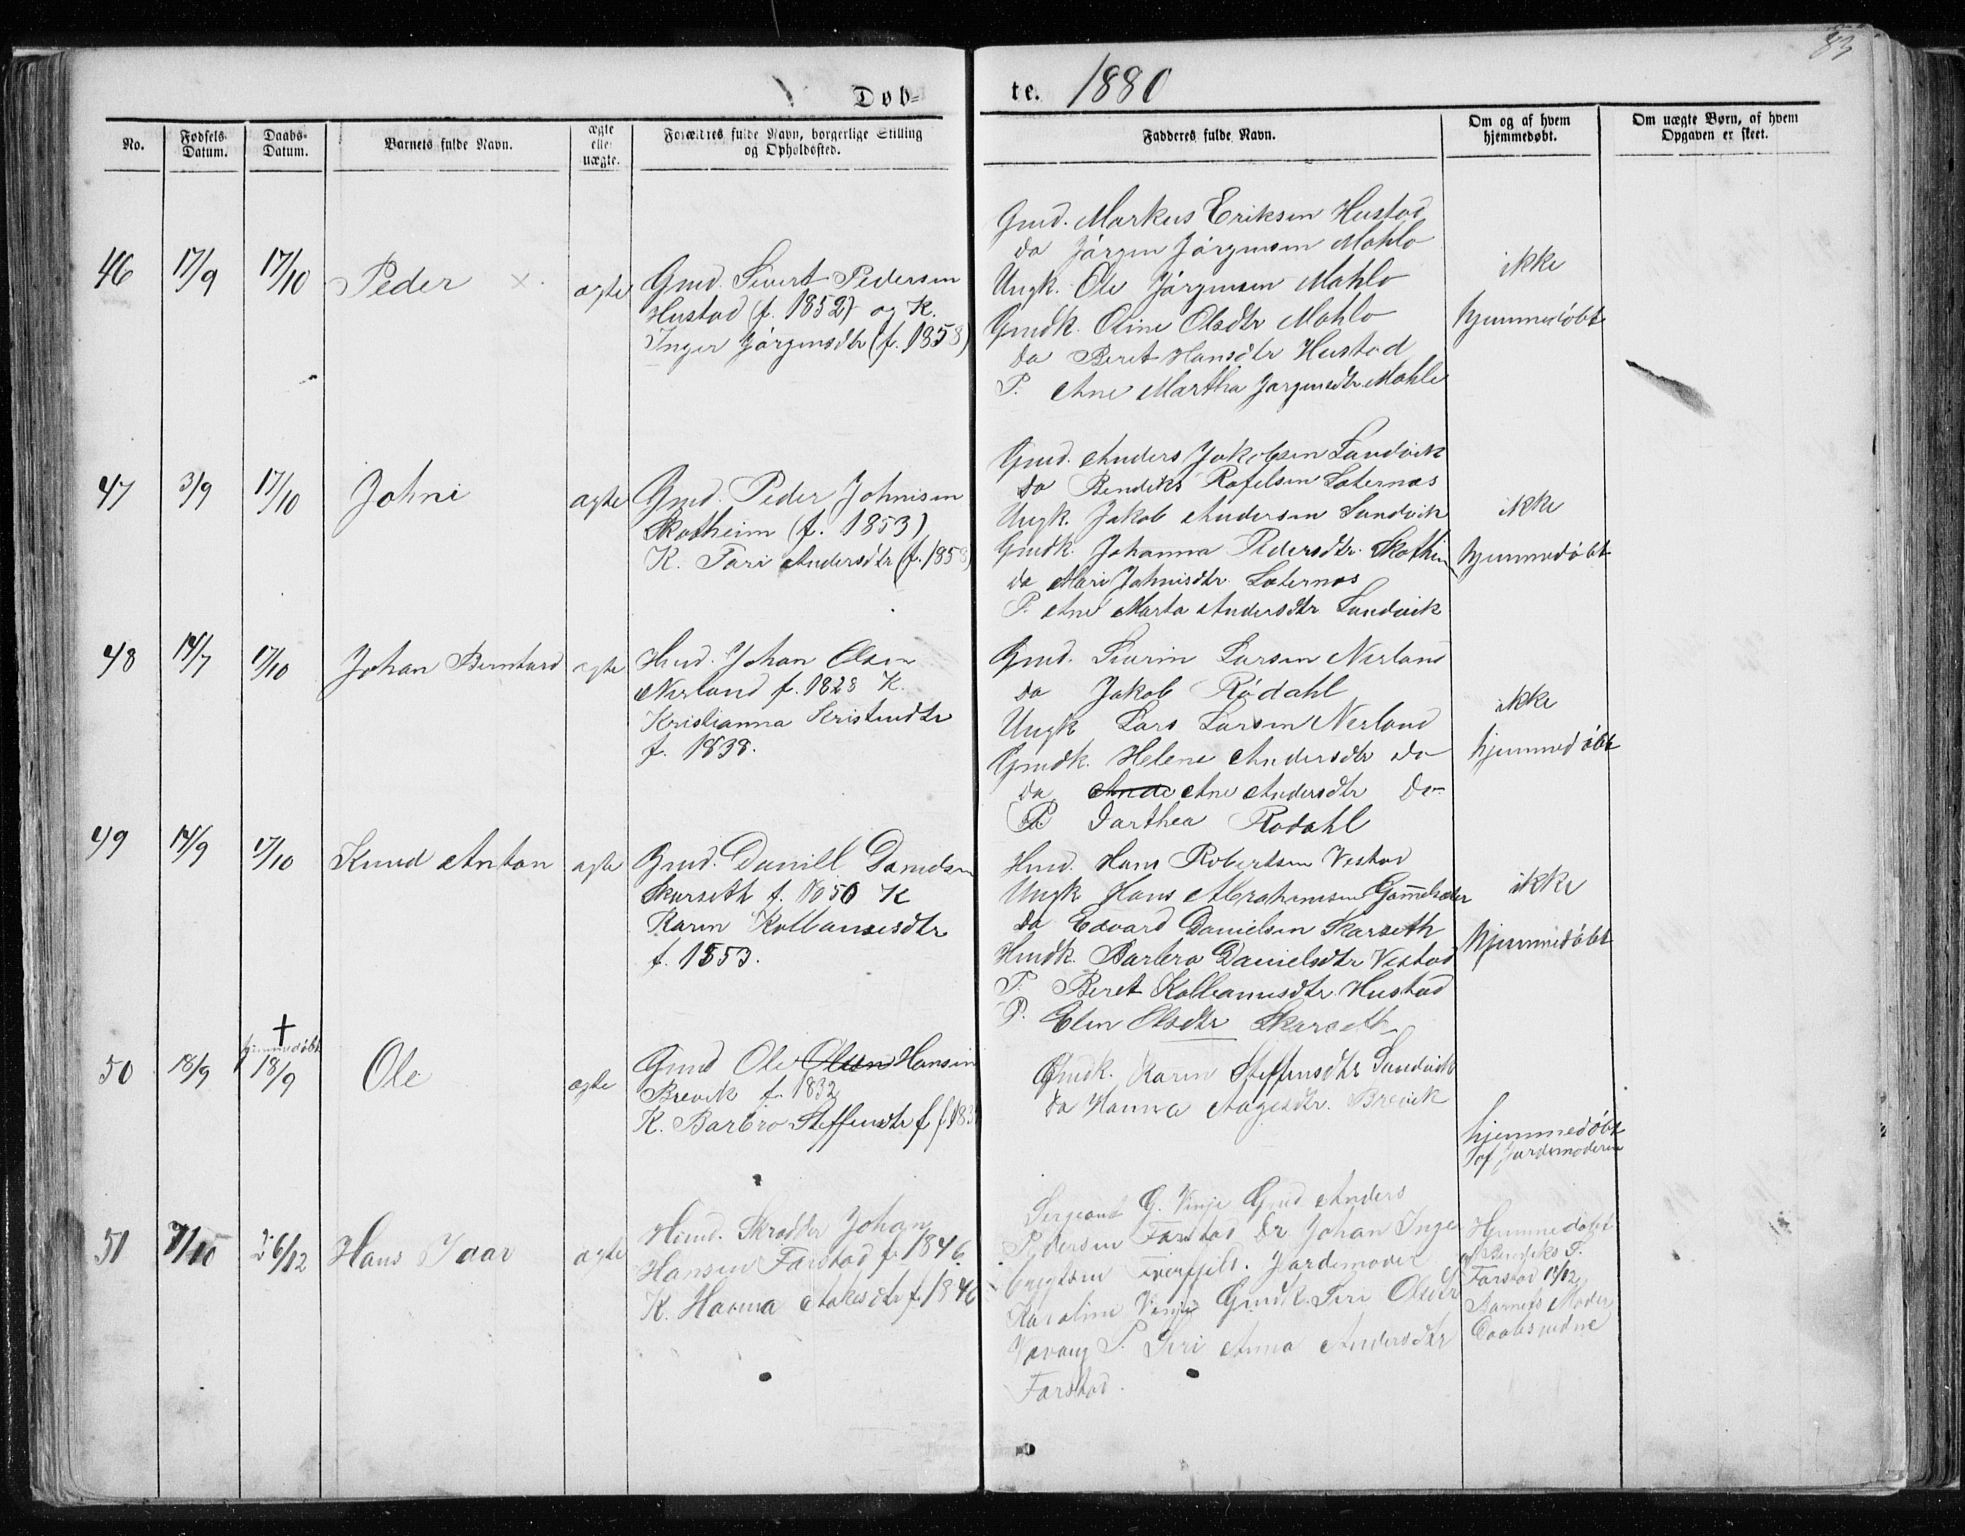 83
Døb=
te. 1880
No.
Fødsels Datum.
Daabs-Datum.
Barnets fulde Navn.
ægte eller uægte.
Forældres fulde Navn, borgerlige Stilling
og Opholdssted.
Faddernes fulde Navn.
Om og af hvem
hjemmedøbt.
Om uægte Børn, af hvem
Opgaven er skeet.
46 17/9 17/10 Peder × ægte
Gmd. Sivert Pedersen
Hustad (f. 1852) og K.
Inger Jørgensdtr (f. 1858)
Gmd. Markus Eriksen Hustad
do Jørgen Jørgensen Mahlo
Ungk. Ole Jørgensen Mahlo
Gmdk. Oline Olsdtr Mahlo
do Beret Hansdtr Hustad
P. Ane Martha Jørgensdtr Mahle
ikke
hjemmedøbt
47 3/9 17/10 Johni ægte
Gmd. Peder Johnisen
Skotheim (f. 1853)
K. Tari Andersdtr (f. 1858)
Gmd. Anders Jakobsen Sandvik
do Bendiks Rafelsen Saternæs
Ungk. Jakob Andersen Sandvik
Gmdk. Johanna Pedersdtr. Skotheim
do Mari Johnisdtr. Saternæs
P. Ane Marta Andersdtr Sandvik
ikke
hjemmedøbt
48 14/7 17/10 Johan Berntard ægte
Hmd. Johan Olsen
Nerland f. 1828 K.
Kristianna Kristendtr
f. 1838.
Gmd. Siurin Larsen Nerland
do Jakob Rødahl
Ungk Lars Larsen Nerland
Gmdk. Helene Andersdtr do
da Ande Ane Andersdtr do
P. Darthea Rødahl
ikke
hjemmedøbt
49 14/9 17/10 Knud Anton ægte
Gmd. Daniel Danielsen
Skarseth f. 1850 K
Karen Kolbansesdtr
f. 1853.
Hmd. Hans Robertsen Vestad
Ungk Hans Abrahamsen Gammelsæter
do Edvard Danielsen Skarseth
Hmdk. Barbro Danielsdtr Vestad
P. Beret Kolbanusdtr Hustad
P. Elen Olsdtr Skarseth
ikke
hjemmedøbt
†
hjemmedøbt
50 18/9 18/9 Ole ægte
Gmd Ole Olsen Hansen
Brevik f. 1832
K. Barbro Steffensdtr f. 183
Gmdk. Karen Steffensdtr Sandvik
do Hanna Aagesdtr. Brevik
hjemmedøbt
af Jordemoderen
51 7/10 26/12 Hans Ivar ægte
Hmd. Skrædder Johan
Hansen Farstad f. 1846.
K. Hanna Aakesdtr f. 1846
Sergeant G. Vinje Gmd Anders
Pedersen Farstad Dr Johan Inge
brigtsen Tverfjeld. Jordemoder
Karoline Vinje Gmdk. Siri Olsdtr
Vevang P. Siri Anna Andersdtr
Farstad.
Hjemmedøbt
af Bendiks P.
Farstad 12/12
Barnets Moder